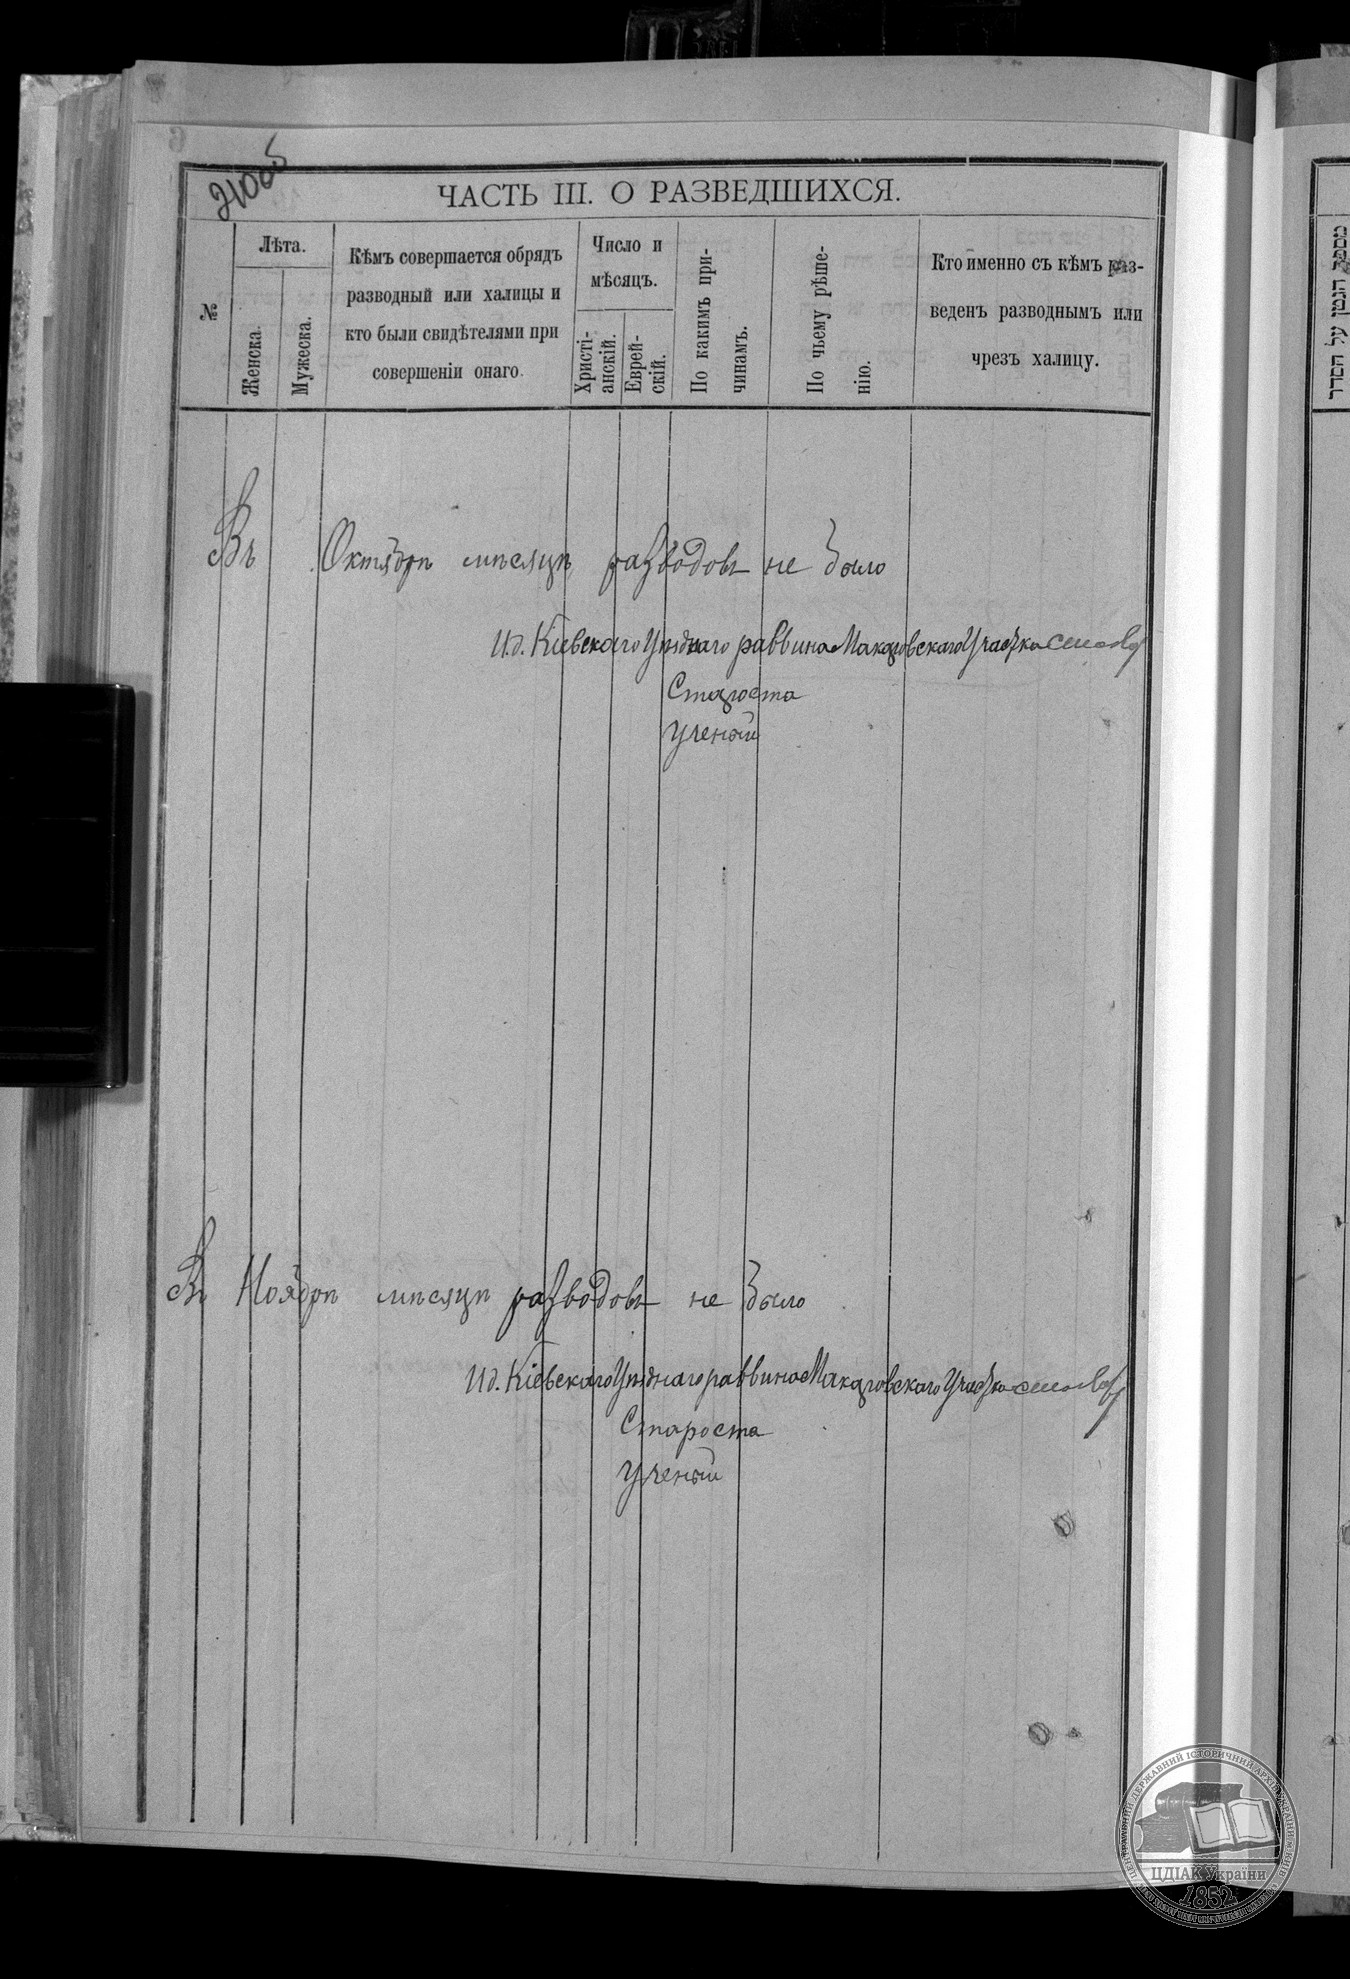 ЧАСТЬ III. О РАЗВЕДШИХСЯ.
№
Лѣта.
Женска.
Мужеска.
Кѣмъ совершается обрядъ
разводный или халицы и
кто были свидѣтелями при
совершеніи онаго.
Число и
мѣсяцъ.
Христі-
анскій.
Еврей-
скій.
По какимъ при-
чинамъ.
По чьему рѣше-
нію.
Кто именно съ кѣмъ раз-
веденъ разводнымъ или
чрезъ халицу.
Въ Октябрѣ мѣсяцѣ разводовъ не было
И.д. Кіевскаго Уѣзднаго раввина Макаровскаго Участка
Староста
Ученый
Въ Ноябрѣ мѣсяцѣ разводовъ не было
И.д. Кіевскаго Уѣзднаго раввина Макаровскаго Участка
Староста
Ученый
ЦЕНТРАЛЬНИЙ ДЕРЖАВНИЙ ІСТОРИЧНИЙ АРХІВ УКРАЇНИ, М. КИЇВ
ЦДІАК України
1852